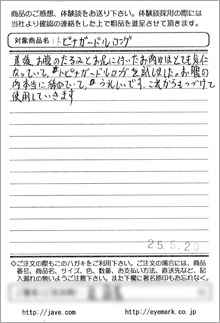 商品のご感想、体験談をお送り下さい。体験談採用の際には
当社より確認の連絡をした上で粗品を進呈させて頂きます。
対象商品名：トピナガードルロング
直後、お腹のたるみとお尻に付いたお肉がほとんど気に
なっていて、トピナガードルロングを試しました。お腹の
肉本当に締めていて、うれしいです。これからもつづけて
使用していきます
25.5.20
◇ご注文の際もこのハガキをご利用下さい。ご注文の場合には、商品
番号、商品名、サイズ、色、数量、お支払い方法、直送先など、記
入漏れの無いようご注意下さい。また下欄に署名捺印もお忘れなく。
http://jave.com
http://eyemark.co.jp